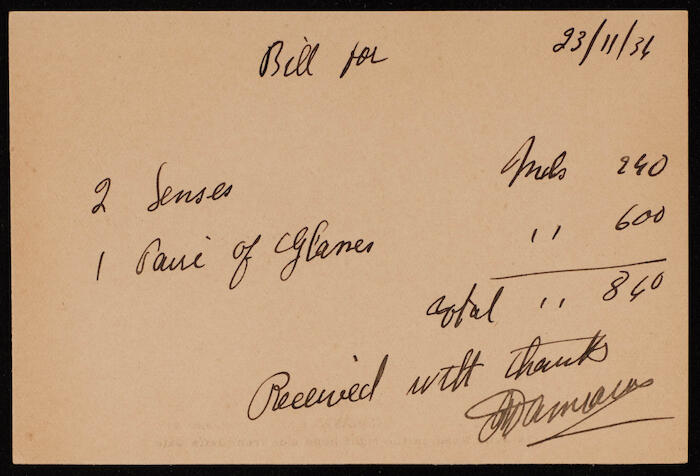 Bill for 23/11/36
2 Lenses Mils 240
1 Paire of Glasses " 600
Total " 840
Received with thanks